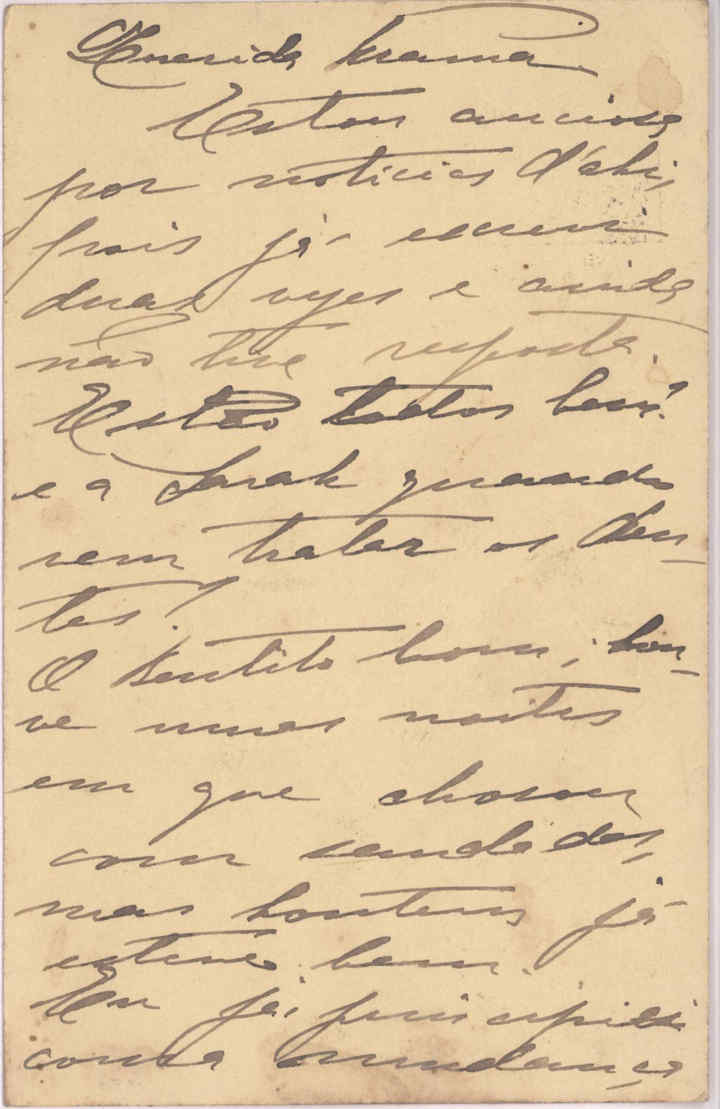 Querida Mamã
Estou anciosa
por noticias d'ahi,
pois já escrevi
duas vezes e ainda
não tive resposta.
Estão todos bem?
e a Sarah quando
vem tratar os den-
tes?
O Bentito bom, hou-
ve umas noites
em que chorou
com saudades,
mas hontem já
esteve bem.
Eu já principiei
com a mudança